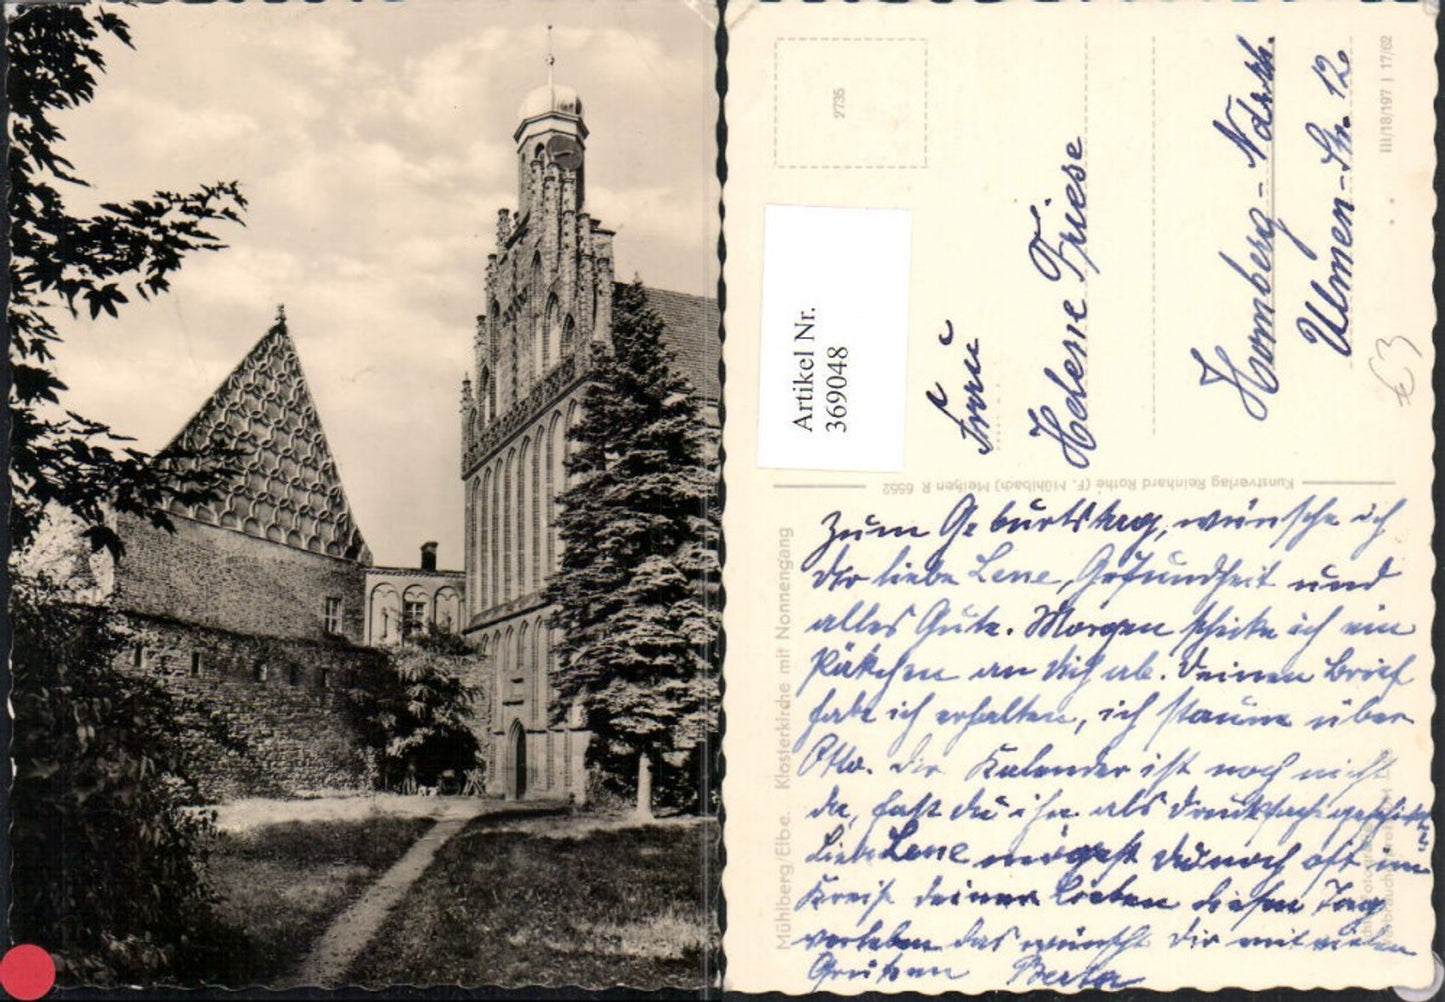 2735
Artikel Nr.
369048
Frau
Helene Friese
Homberg-Ndrrh.
Ulmen-Str. 12
III/18/197 J 17/62
€3
Kunstverlag Reinhard Rothe (F. Mühlbach) Meißen R 6552
Mühlberg/Elbe. Klosterkirche mit Nonnengang
Zum Geburtstag, wünsche ich
dir liebe Lene, Gesundheit und
alles Gute. Morgen schicke ich ein
Päckchen an dich ab. Deinen Brief
habe ich erhalten, ich staune über
Otto. Der Kalender ist noch nicht
da, hast du ihn als Drucksache geschickt
Liebe Lene mögest du noch oft im
Kreise deiner Lieben diesen Tag
verleben das wünscht dir mit vielen
Grüßen Berta